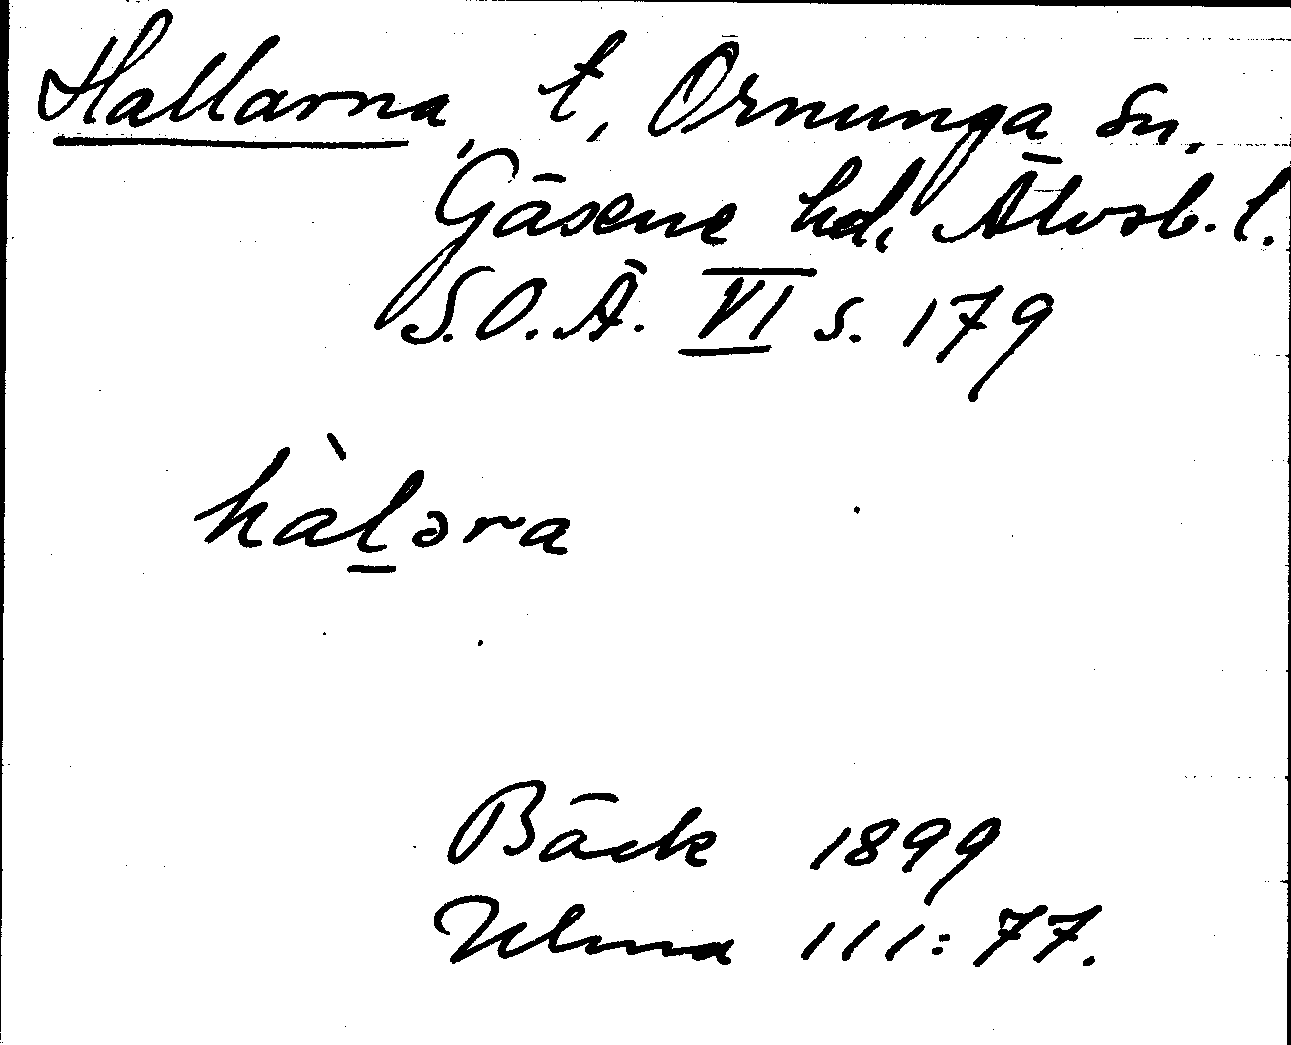 Hallarna, t, Ornunga sn.
Gäsene hd, Älvsb. l.
S.O.Ä. VI s. 179
hàl̲əra
Bäck 1899
Ulma 111:77.